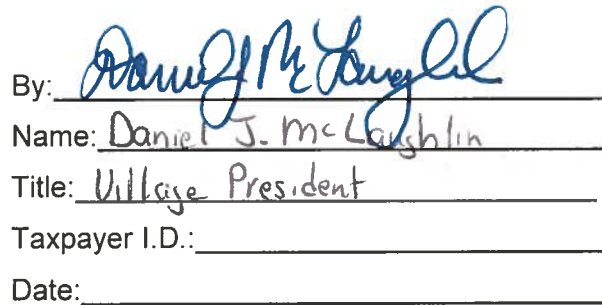 By: Daniel J McLaughlin
Name: Daniel J. McLaughlin
Title: Village President
Taxpayer I.D.:
Date: